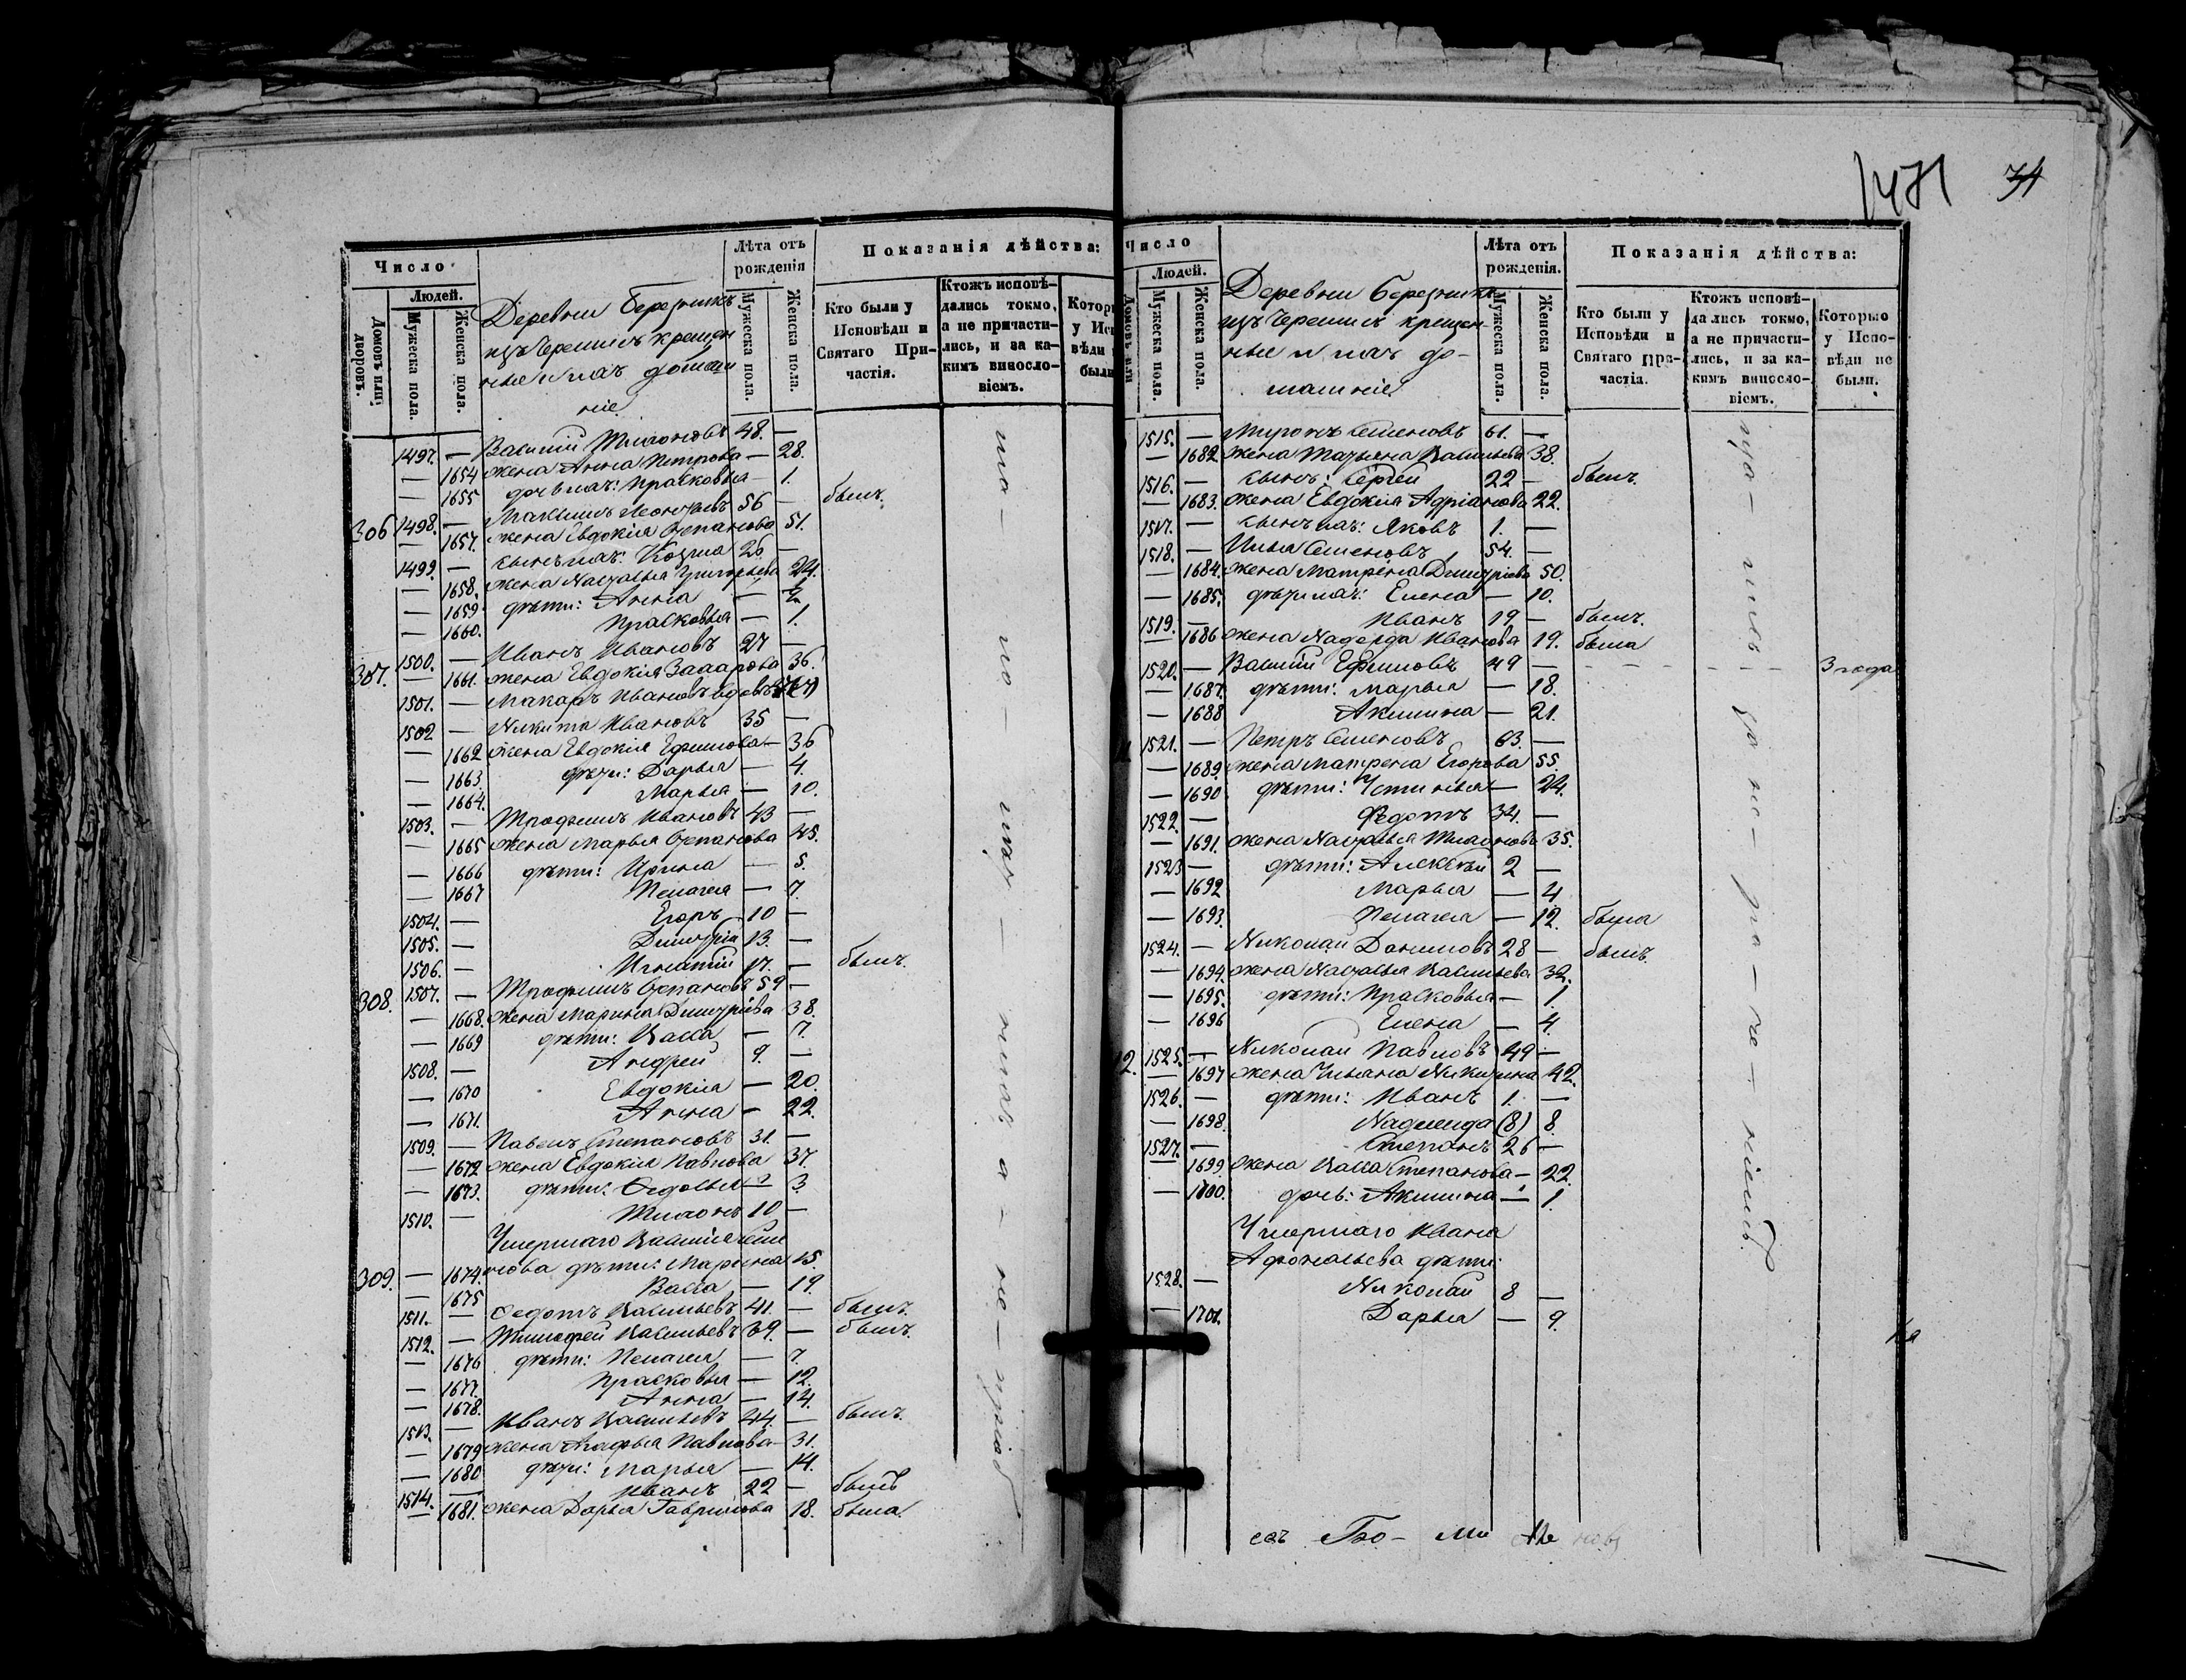 Число
Людей.
Домовъ или дворовъ.
Мужеска пола.
Женска пола.
Деревни Березникъ
изъ Черемисъ крещен
ные и ихъ домаш
ніе
Лѣта отъ
рожденія
Мужеска пола.
Женска пола.
Показанія дѣйства:
Кто были у
Исповѣди и
Святаго При-
частія.
Ктожъ исповѣ-
дались токмо,
а не причасти-
лись, и за ка-
кимъ виносло-
віемъ.
1497. — Василій 48. —
— 1654 жена Анна Петрова — 28.
— 1655 дочь ихъ: Прасковья — 1.
306 1498. — Максимъ Леонтьевъ 56 — былъ.
— 1657. жена Евдокія Степанова 51.
1499. — сынъ ихъ: Козма 26. —
— 1658. жена Наталья Григорьева 24.
— 1659 дѣти: Анна — 2.
— 1660. Прасковья — 1.
307. 1500. — Иванъ Ивановъ 27 —
— 1661. жена Евдокія Захарова 36.
1501. — Макаръ Ивановъ вдовъ
1502 — Никита Ивановъ 35 —
— 1662 жена Евдокія Ефимова — 36
— 1663. дѣти: Дарья — 4.
— 1664. Марья — 10.
1503. — Трофимъ Ивановъ 43 —
— 1665 жена Марья Степанова 45.
— 1666 дѣти: Ирина — 5.
— 1667 Пелагея — 7.
1504. — Егоръ 10 —
1505. — Димитрій 13. —
1506. — Игнатій 17. — былъ.
308. 1507. — Трофимъ Степановъ 59 —
— 1668. жена Марина Димитріева 38.
— 1669 дѣти: Васса — 7.
1508. — Андрей 9. —
— 1670 Евдокія — 20.
— 1671. Анна — 22.
1509. — Павелъ Степановъ 31. —
— 1672 жена Евдокія Павлова 37.
— 1673. дѣти: Федосья — 3.
1510. — 10 —
Умершаго Василія Семе
309. — 1674. нова дѣти: Марина 15.
— 1675 Васса — 19.
1511. — Федотъ Васильевъ 41. — былъ.
1512. — Тимофей Васильевъ 39. — былъ.
— 1676 дѣти: Пелагея — 7.
— 1677. Прасковья — 12.
— 1678. Анна — 14.
1513. — Иванъ Васильевъ 44. — былъ.
— 1679 жена Агафья Павлова — 31.
— 1680 дѣти: Марья — 14.
1514. — Иванъ 22 — былъ
— 1681. жена Дарья Гаврилова 18. была.
1471 74
Число
Людей.
Мужеска пола.
Женска пола.
Деревни Березникъ
изъ Черемисъ крещен-
ные и ихъ до-
машніе
Лѣта отъ
рожденія.
Мужеска пола.
Женска пола.
Показанія дѣйства:
Кто были у
Исповѣди и
Святаго При-
частія.
Ктожъ исповѣ-
дались токмо,
а не причасти-
лись, и за ка-
кимъ виносло-
віемъ.
Которые
у Испо-
вѣди не
были.
1515. — Миронъ Семеновъ 61. —
— 1682 жена Татьяна Васильева 38.
1516. — сынъ: Сергей 22 — былъ.
— 1683. жена Евдокія Адріанова 22.
1517. — сынъ ихъ: Яковъ 1. —
1518. — Илья Семеновъ 54. —
— 1684. жена Матрена Димитріева 50.
— 1685. дѣти ихъ: Елена — 10.
1519. — Иванъ 19 — былъ.
— 1686 жена Надежда Иванова 19. была
1520. — Василій Ефимовъ 49 — 3 года
— 1687. дѣти: Марья — 18.
— 1688 Акилина — 21.
1521. — Петръ Семеновъ 63. —
— 1689. жена Матрена Егорова 55.
— 1690 дѣти: Устинья — 24.
1522. — Федотъ 34. —
— 1691. жена Наталья 35.
1523 — дѣти: Алексѣй 2 —
— 1692 Марья — 4
— 1693. Пелагея — 12. была
1524. — Николай Даниловъ 28 — былъ.
— 1694. жена Наталья Васильева 32.
— 1695. дѣти: Прасковья — 1.
— 1696 Елена — 4.
2. 1525. — Николай Павловъ 49 —
— 1697 жена Ульяна Никитина 42.
1526. — дѣти: Иванъ 1. —
— 1698. Надежда (8) 8.
1527. — Степанъ 26 —
— 1699. жена Васса Степанова — 22.
— 1700. дочь: Акилина — 1.
Умершаго Ивана
Афонасьева дѣти:
1528. — Николай 8 —
— 1701. Дарья — 9.